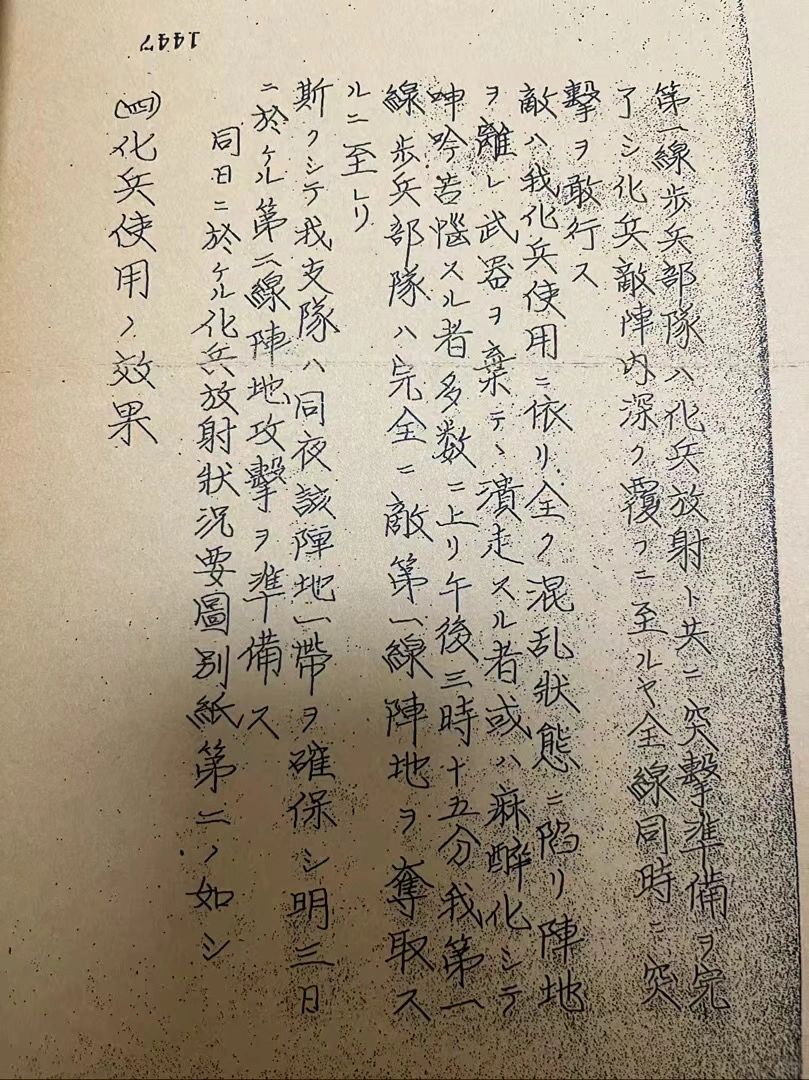 第一線歩兵部隊ハ化兵放射ト共ニ突撃準備ヲ完
了シ化兵敵陣内深ク覆フニ至ルヤ全線同時ニ突
撃ヲ敢行ス
敵ハ我化兵使用ニ依リ全ク混乱狀態ニ陷リ陣地
ヲ離レ武器ヲ棄テヽ潰走スル者或ハ麻醉化シテ
呻吟苦惱スル者多数ニ上リ午後三時十五分我第一
線歩兵部隊ハ完全ニ敵第一線陣地ヲ奪取ス
ルニ至レリ
斯クシテ我支隊ハ同夜該陣地一帶ヲ確保シ明三日
ニ於ケル第二線陣地攻擊ヲ準備ス
同日ニ於ケル化兵放射狀況要圖別紙第二ノ如シ
(四)化兵使用ノ效果
1447